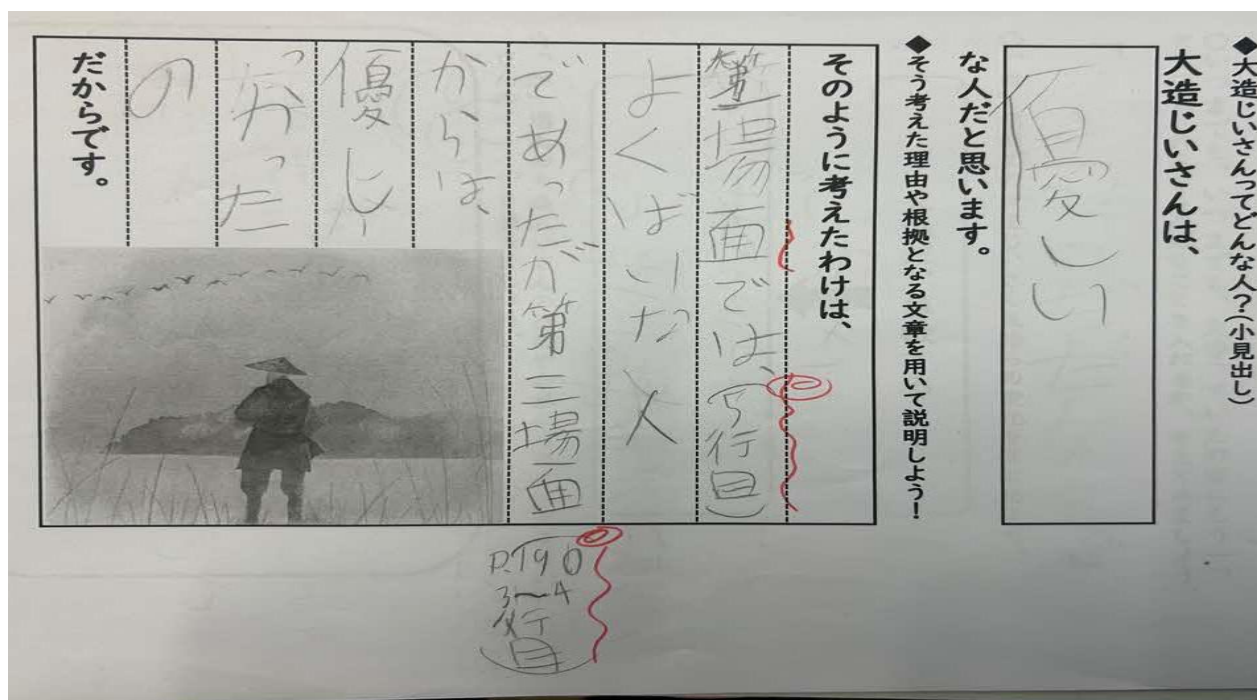 ◆大造じいさんってどんな人?(小見出し)
大造じいさんは、
優しい
な人だと思います。
◆そう考えた理由や根拠となる文章を用いて説明しよう!
そのように考えたわけは、
第一場面では、(5行目)
よくばりな人
であったが第三場面
からは、
優し
かった
の
だからです。
P.190
3〜4
行
目)